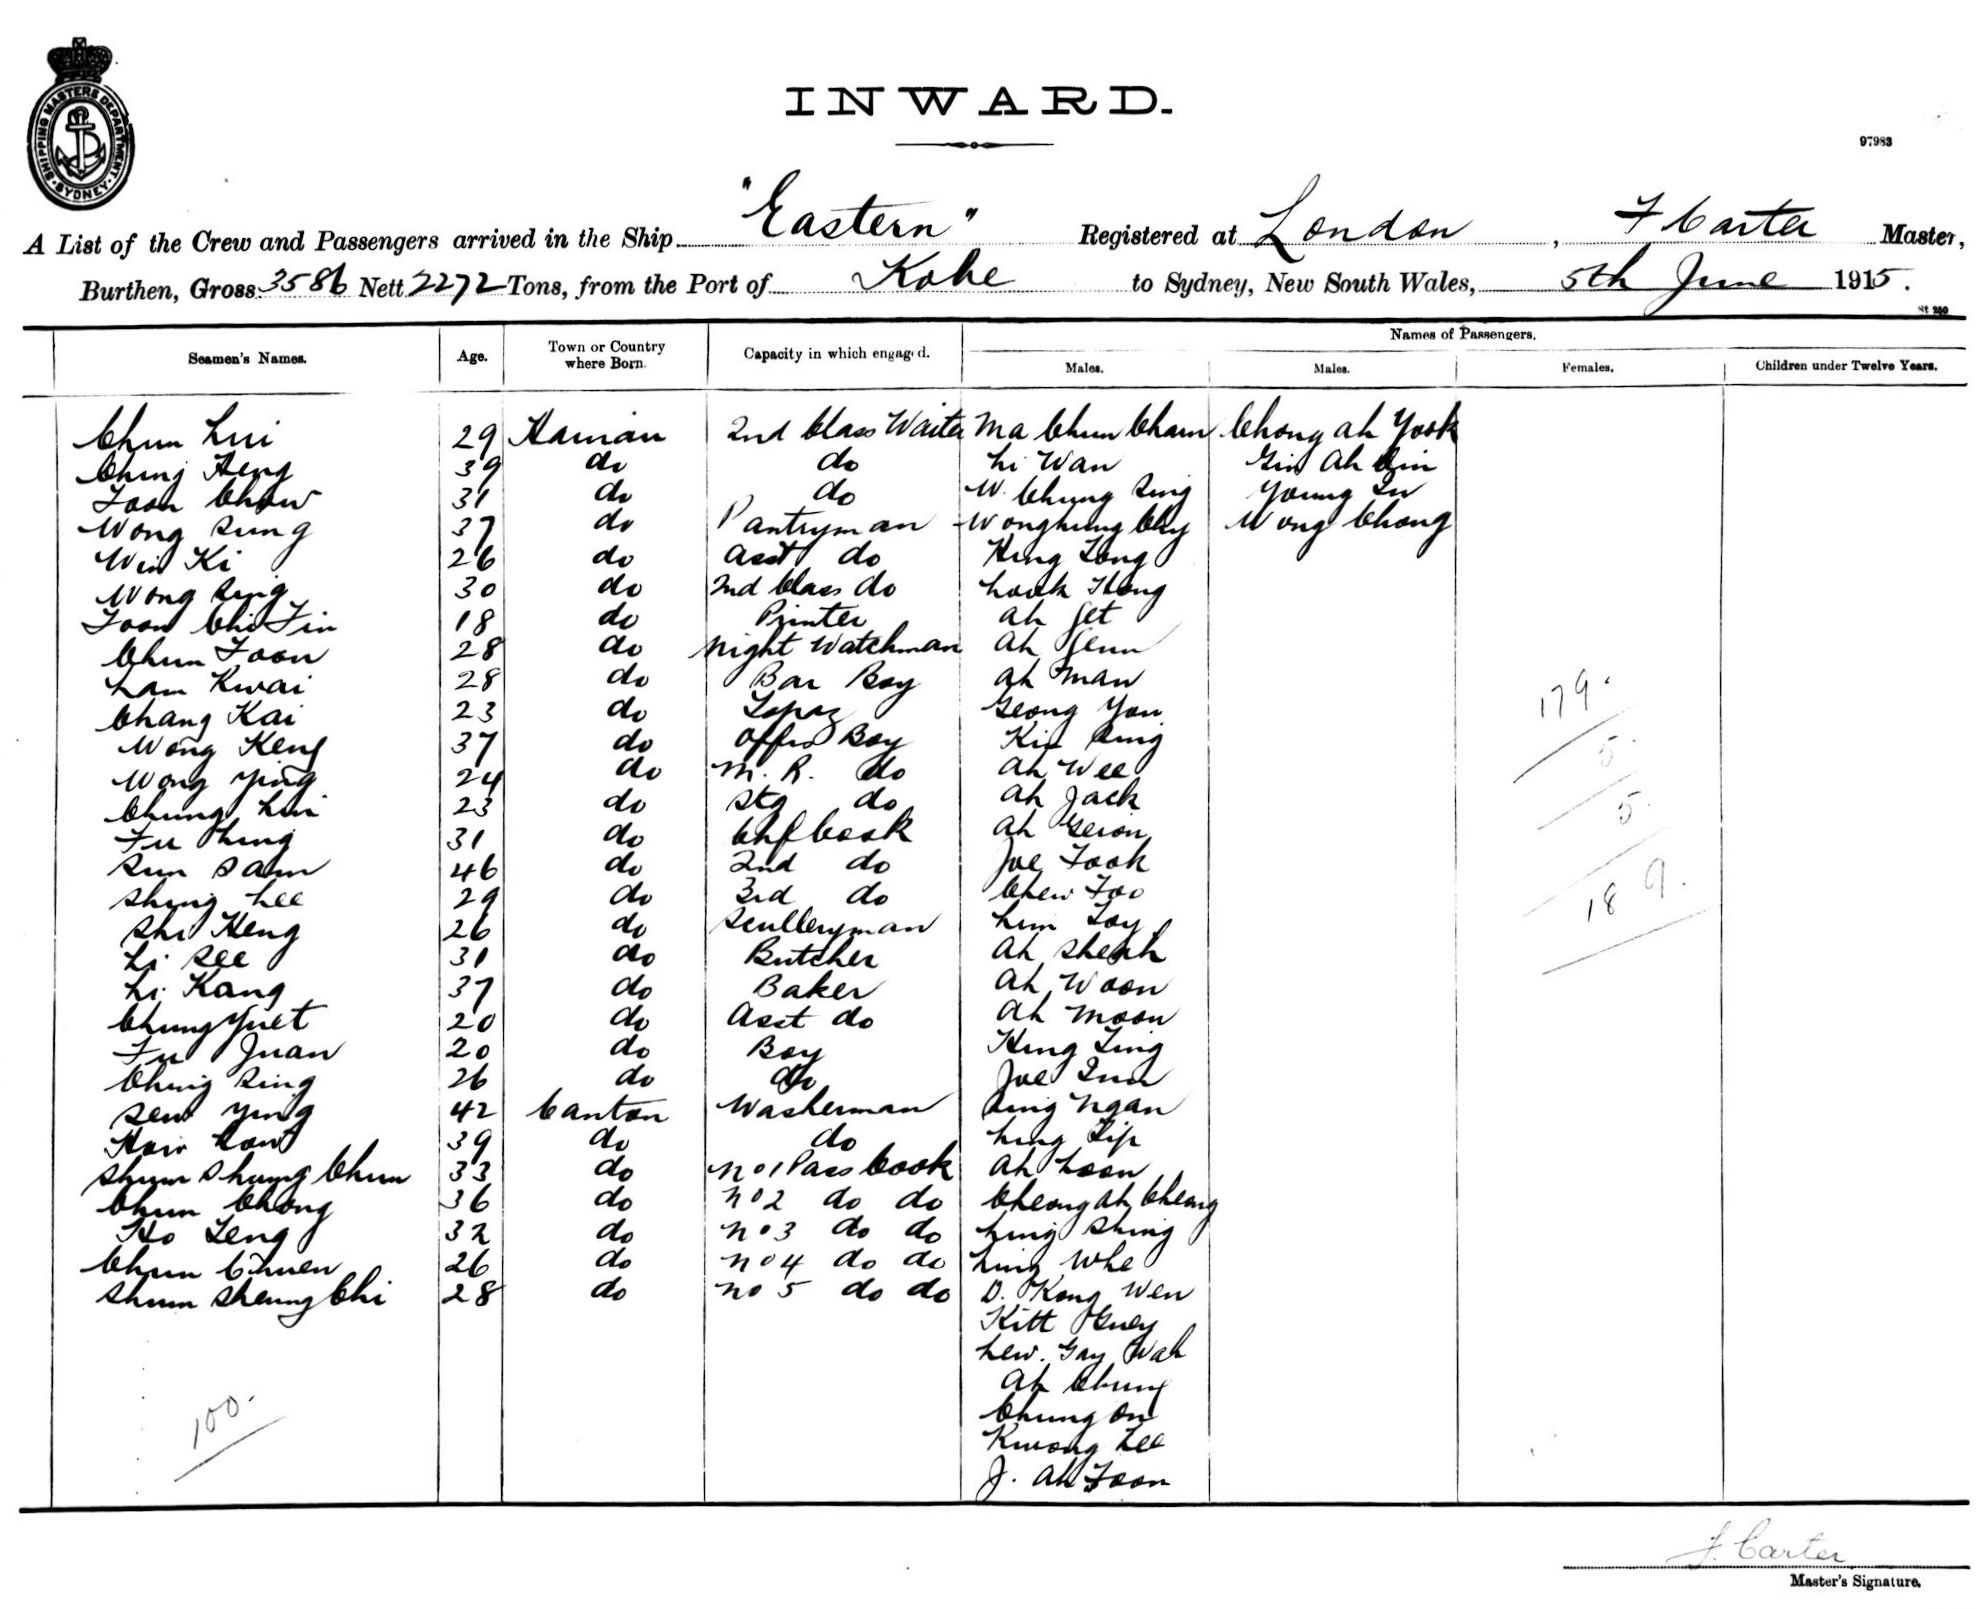 SHIPPING MASTERS DEPARTMENT SYDNEY
INWARD.
97983
A List of the Crew and Passengers arrived in the Ship "Eastern" Registered at London, F Carter Master,
Burthen, Gross 3586 Nett 2272 Tons, from the Port of Kobe to Sydney, New South Wales, 5th June 1915.
St 240
Names of Passengers.
Seamen's Names. Age. Town or Country where Born. Capacity in which engaged. Males. Males. Females. Children under Twelve Years.
Chun Lui 29 Hainan 2nd Class Waiter Ma Chun Cham Chong ah Yook
Ching Heng 39 do do Li Wan Gin Ah
Foon Chow 31 do do W. Chung Sing Young
Wong Sung 37 do Pantryman Wong Chong
Win Ki 26 do Asst do
Wong Sing 30 do 2nd Class do
Foon Chi Fin 18 do Printer Ah Get
Chun Foon 28 do Night Watchman Ah
Lam Kwai 28 do Bar Boy Ah Man
Chang Kai 23 do Topaz Geong You
Wong Keng 37 do Offrs Boy
Wong Ying 24 do M. R. do Ah Wee
Chung Lui 23 do Stg do Ah Jack
Fu Hing 31 do Chf Cook Ah
Sun Sam 46 do 2nd do Joe Fook
Shing Lee 29 do 3rd do Chew Foo
Shi Heng 26 do Sculleryman Lim Loy
Li See 31 do Butcher Ah
Li Kang 37 do Baker Ah Woon
Chung Yuet 20 do Asst do Ah Moon
Fu Juan 20 do Boy
Ching Sing 26 do do Joe
Sew Ying 42 Canton Washerman Ngan
39 do do
Shum Shang Chun 33 do No 1 Pass Cook Ah Loon
Chun Chong 36 do No 2 do do Cheong Ah Cheong
Ho Leng 32 do No 3 do do Hing Shing
Chun Chuen 26 do No 4 do do Whe
Shum Sheung Chi 28 do No 5 do do D. Kong Wen
Kitt Guey
Lew. Gay Wah
Ah Chung
Chung On
Kwong Lee
J. Ah Foon
179.
5.
5.
189.
100.
F. Carter
Master's Signature.